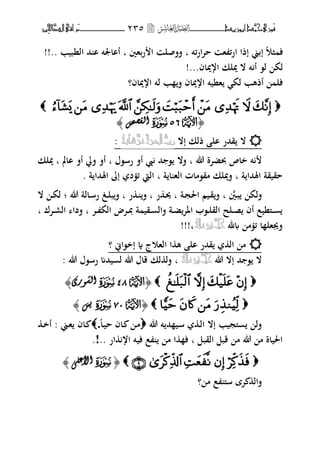 ٢٣٥
فمثلاً إبني إذا ارتفعت حرارته .. ووصلت الأربعين ، أعالجه عند الطبيب ..!!
لكن لو أنه لا يملك الإيمان...!
فلمن أذهب لكي يعطيه الإيمان ويهب له الإيمان؟
﴿ إِنَّكَ لَا تَهْدِي مَنْ أَحْبَبْتَ وَلَٰكِنَّ اللَّهَ يَهْدِي مَن يَشَاءُ
﴾ ﴿٥٦﴾ سورة القصص
لا يقدر على ذلك إلا :
لأنه خاص بحضرة الله ، ولا يوجد نبي أو رسول ، أو ولي أو عالم ، يملك
حقيقة الهداية ، ويملك مقومات العناية ، التي تؤدي إلى الهداية .
ولكن يبيَّن ، ويقيم الحجة ، يحذر ، وينذر ، ويبلغ رسالة الله ؛ لكن لا
يستطيع أن يصلح القلوب المريضة والسقيمة بمرض الكفر ، وداء الشرك ،
ويجعلها تؤمن بالله ،!!!
من الذي يقدر على هذا العلاج يا إخواني ؟
لا يوجد إلا الله ، ولذلك قال الله لسيدنا رسول الله :
﴿ إِنْ عَلَيْكَ إِلَّا الْبَلَاغُ ﴾ ﴿٤٨﴾ سورة الشورى
﴿ لِيُنذِرَ مَن كَانَ حَيًّا ﴾ ﴿٧٠﴾ سورة يس
ولن يستجيب إلا الذي سيهديه الله (من كان حياً) كان يعني : أخذ
الحياة من الله من قبل القبل ، فهذا من ينفع فيه الإنذار ..!.
﴿ فَذَكِّرْ إِن نَّفَعَتِ الذِّكْرَىٰ ٩ ﴾ سورة الأعلى
والذكرى ستنفع من؟